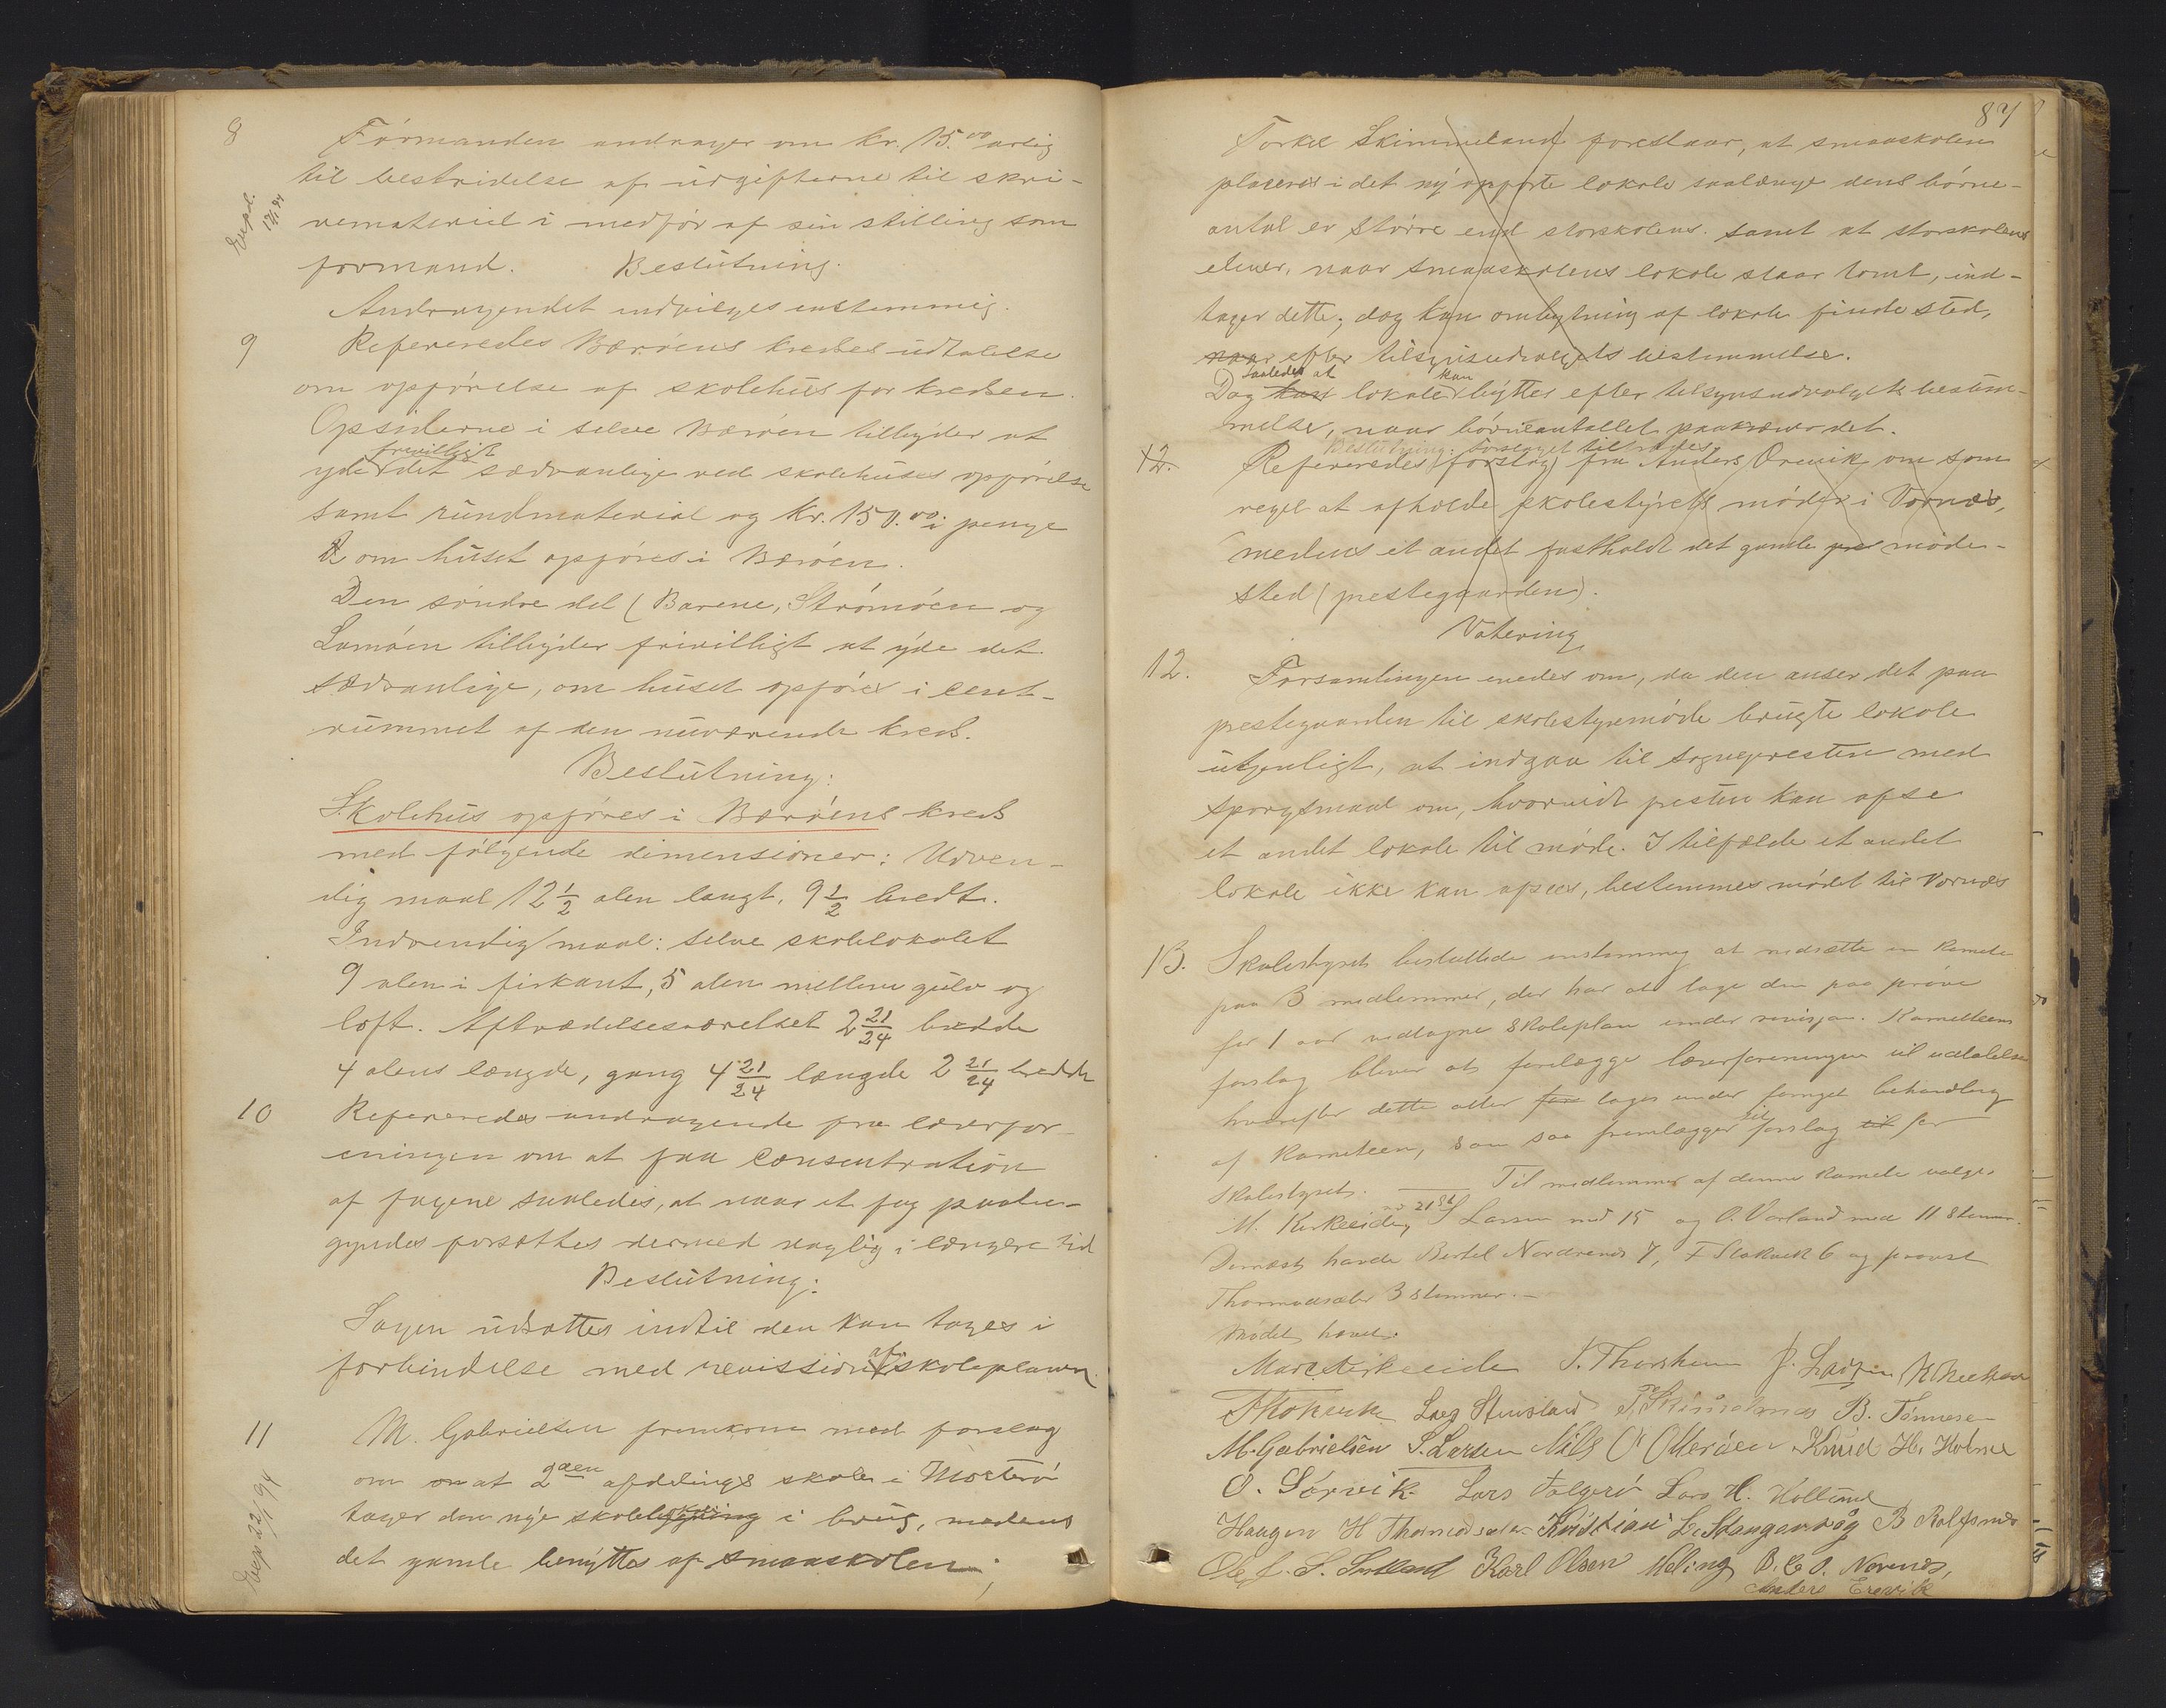 8
Formanden andrager om kr. 15.00 aarlig
til bestridelse af udgifterne til skri-
vemateriel i medfør af sin stilling som
formand. Beslutning.
Andragendet indvilges enstemmig.
9
Refereredes Bærøens kredses udtalelse
om opførelse af skolehus for kredsen.
Opsiderne i selve Bærøen tilbyder at
yde frivilligt det sædvanlige ved skolehuses opførelse
samt rundmaterial og Kr. 150.00 i penge
om huset opføres i Bærøen.
Den søndre del (Barene, Strømøen og
Lamøen tilbyder frivilligt at yde det
sædvanlige, om huset opføres i cent-
rummet af den nuværende kreds.
Beslutning:
Skolehus opføres i Bærøens kreds
med følgende dimensioner: Udven-
dig maal 12 1/2 alen langt, 9 1/2 bredt.
Indvendig maal: selve skolelokalet
9 alen i firkant, 5 alen mellem gulv og
loft. Aftrædelsesværelset 2 21/24 bredde
4 alens længde, gang 4 21/24 længde 2 21/24 bredde
10
Refereredes andragende fra lærerfor-
eningen om at faa consentration
af fagene saaledes, at naar et fag paabe-
gyndes forsættes dermed daglig i længere tid
Beslutning:
Sagen udsættes indtil den kan tages i
forbindelse med revission af skoleplanen.
11
M. Gabrielsen fremkom med forslag
om at 2den afdelings skole i Mosterø
tager den nye skolelokale i brug, medens
det gamle benyttes af smaaskolen;
Exp 22/1 94
87
Torkel Skimmeland foreslaar, at smaaskolen
plaseres i det ny opførte lokale saalænge dens børne-
antal er større end storskolens. samt at storskolens
elever, naar smaaskolens lokale staar tomt, ind-
tager dette; dog kan ombytning af lokale finde sted,
naar efter tilsynsudvalgets bestemmelse.
Dog saaledes at lokale kan byttes efter tilsynsudvalgets bestem-
melse, naar børneantallet paakræver det.
Beslutning: forslaget tilraades
12.
Refereredes forslag fra Anders Ørevik om som
regel at afholde skolestyrets møder i Vornæs,
medens et andet fastholdt det gamle møde-
sted (prestegaarden).
Votering
12.
Forsamlingen enedes om, da den anser det paa
prestegaarden til skolestyremøde brugte lokale
utjenligt, at indgaa til sognepresten med
spørgsmaal om, hvorvidt presten kan afse
et andet lokale til møde. I tilfælde et andet
lokale ikke kan afsees, bestemmes mødet til Vornæs
13.
Skolestyret besluttede enstemmig at nedsætte en komite
paa 3 medlemmer, der har at tage den paa prøve
for 1 aar vedtagne skoleplan under revisjon. Komiteens
forslag bliver at forelægge lærerforeningen til udtalelse
hvorefter dette atter tages under fornyet behandling
af komiteen, som saa fremlægger sit forslag for
Skolestyret. Til medlemmer af denne komite valgtes
M. Kirkeeide, md 21 St S Larsen med 15 og O. Vorland med 11 stemmer.
Dernæst havde Bertel Nordrenes 7, F Stokvik 6 og provst
Thormodsæter 3 stemmer.
Mødet hævet.
T. Thorsheim J. Larsen
M. Gabrielsen S. Larsen Nils O Otterøen Knud H. Holme
O. Sørvik Lars Folgerø Lars H. Holland
Haagen H Thormodsæter Kristian L. Stangervåg B Rolfsnes
Karl Olsen Meling B. C. O. Nornes,
Anders Erevik